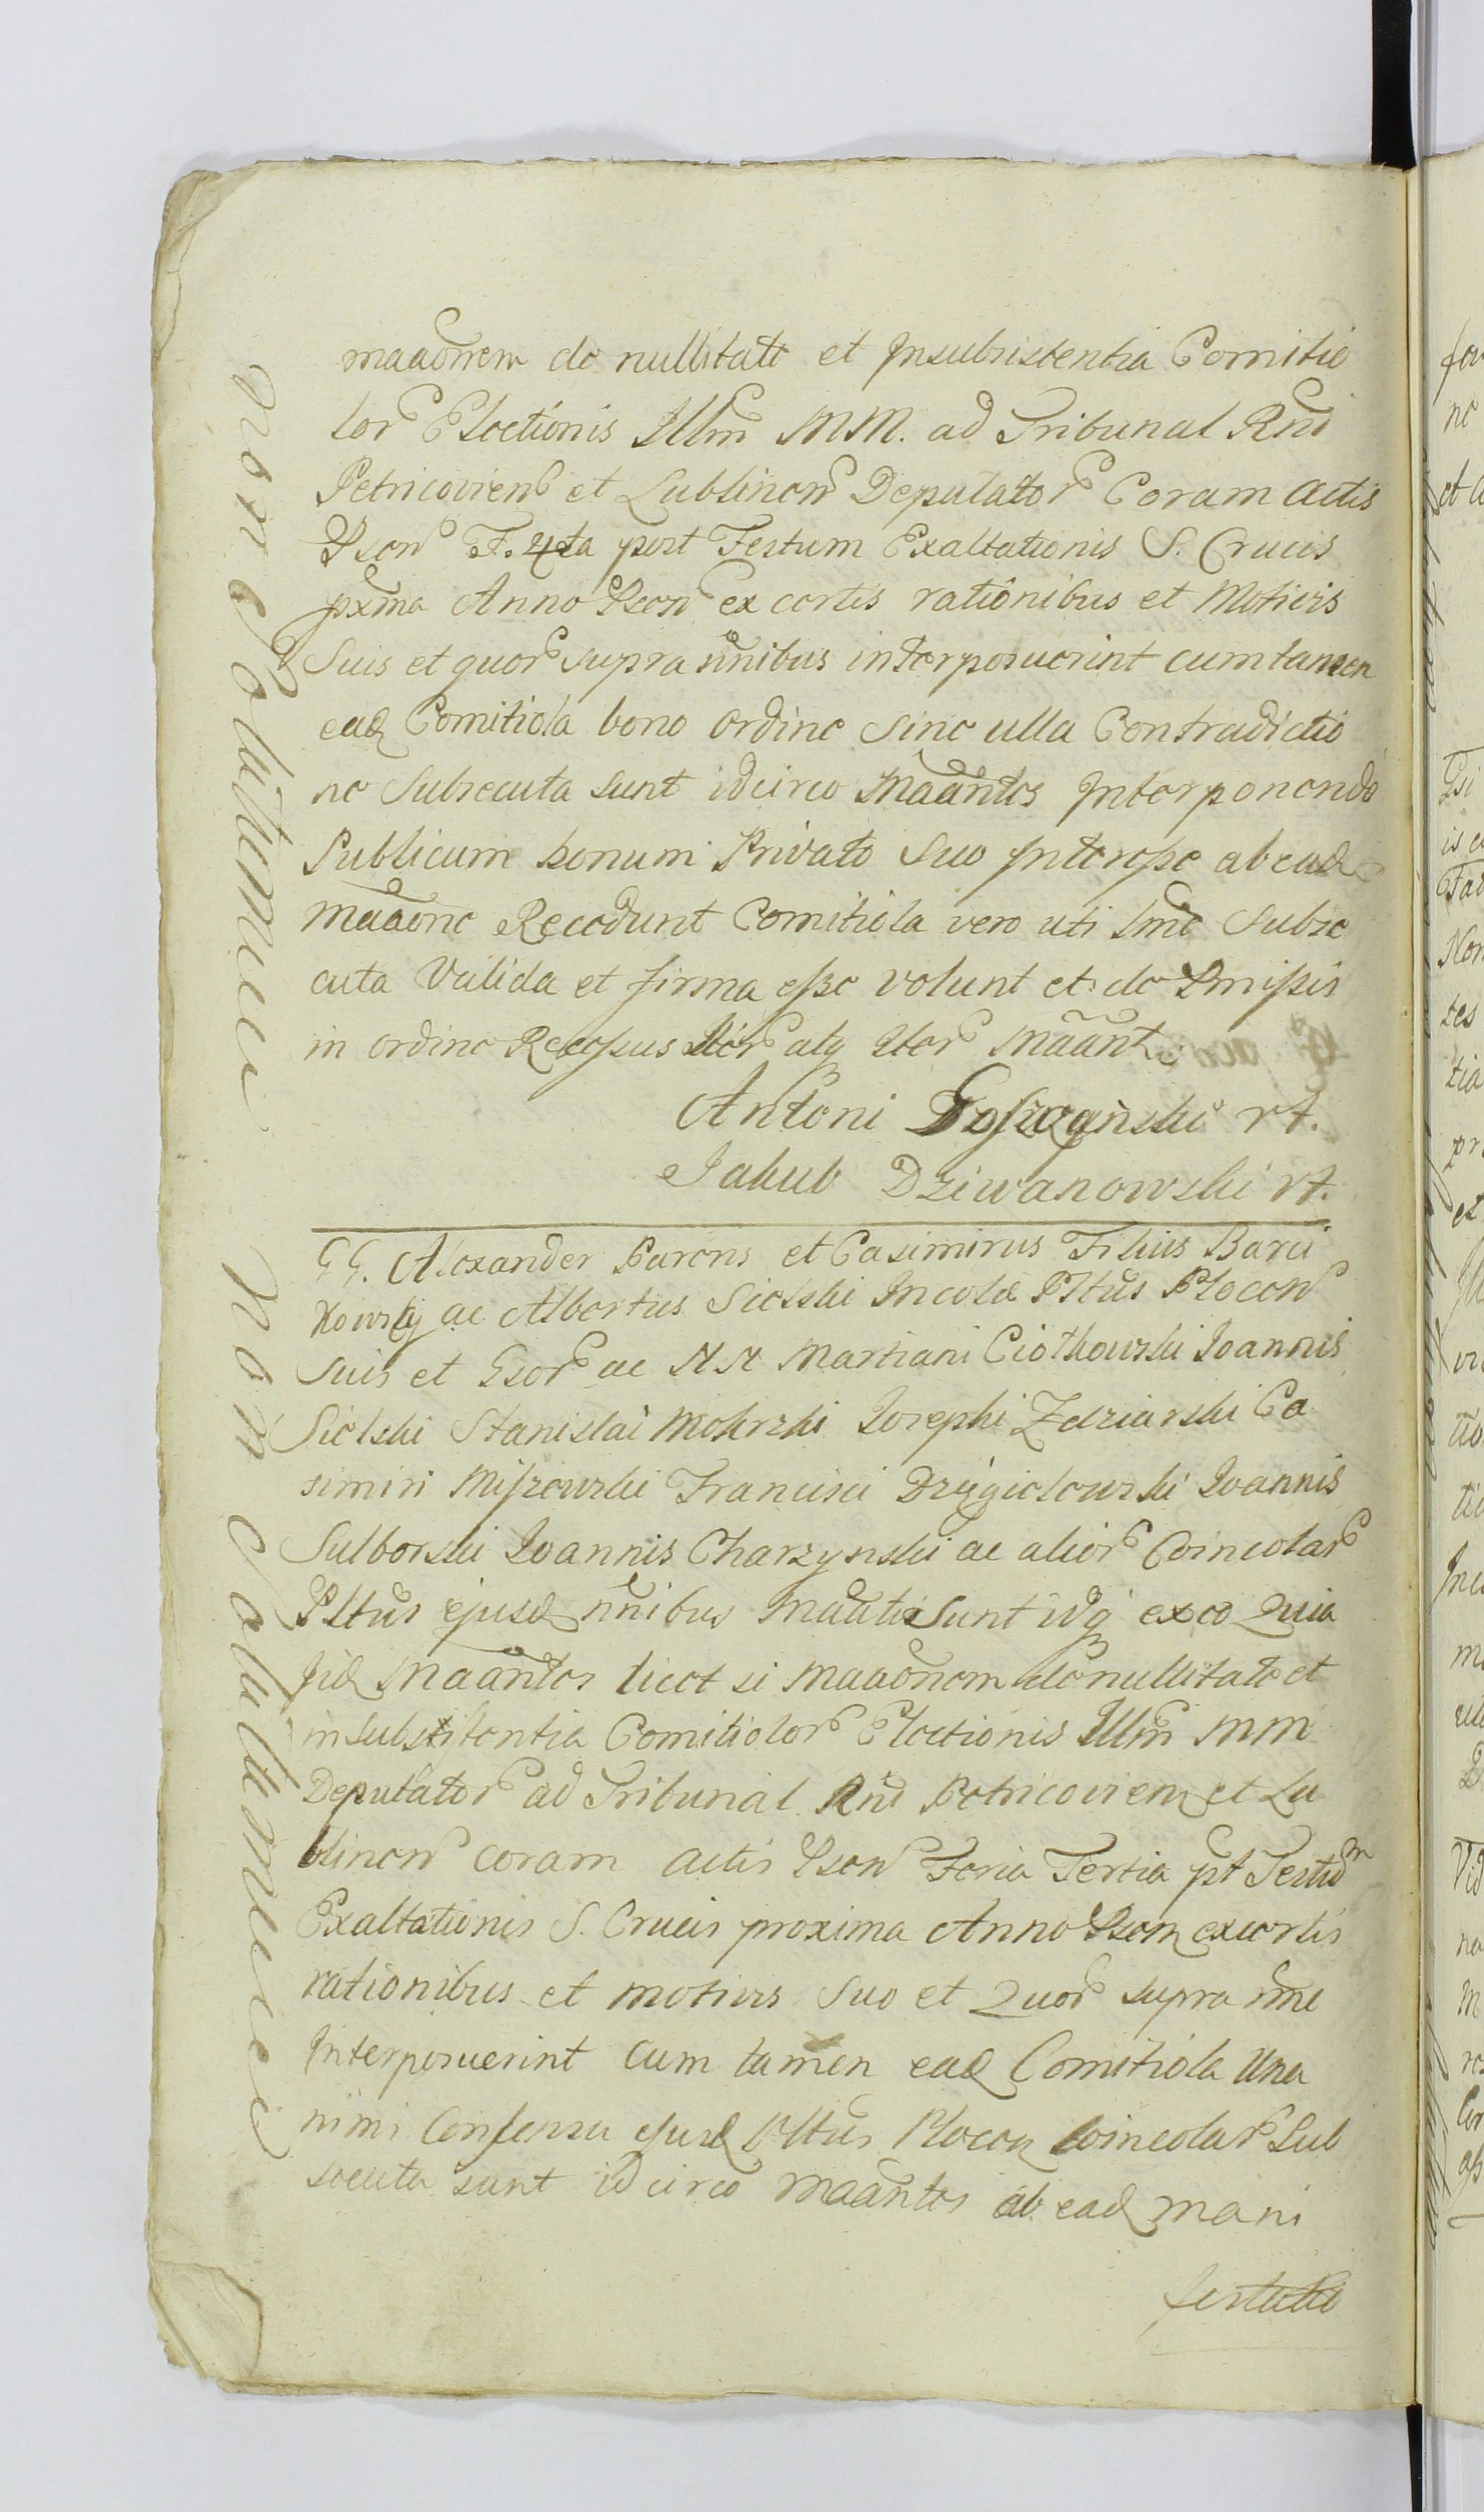 maãonem de nullitate et Insubsistentia Comitio
lor Electionis Illm MM. ad Tribunal Rni
Petricoviens et Lublinen Deputator Coram actis
Psen F. 4ta post Festum Exaltationis S. Crucis
pxma Anno Psen ex certis rationibus et Motivis
Suis et quor supra nnibus interposuerint cum tamen
ead Comitiola bono ordine sine ulla Contradictio
ne Subsecuta sunt idcirco Maantes Interponendo
Publicum bonum Privato Suo Interesse ab ead
maaone Recedunt Comitiola vero uti lme Subse
cuta Valida et firma esse volunt et de Pmissis
in ordine Recessus Nor atq Ator Maant
Antoni Goszczyński rt.
Jakub Dziwanowski rt.
GG. Alexander Parens et Casimirus Filius Barci
kowscy ac Albertus Sielski Incolæ Pltus Plocen
Suis et Gsor ac NN Martiani Ciołkowski Ioannis
Sielski Stanislai Mokrski Iosephi Zdziarski Ca
simiri Miszewski Francisci Drigielowski Ioannis
Sulborski Ioannis Charzynski ac alior Coincolar
Pltus ejusd nnibus Maati Sunt idq ex eo Quia
Iid Maantes licet si maaonem de nullitate et
insubsistentia Comitiolor Electionis Illm MM
Deputator ad Tribunal Rni Petricovien et Lu
blinen coram actis Psen Feria Tertia pt Festum
Exaltationis S. Crucis proxima Anno Psen ex certis
rationibus et motivis Suo et Quor supra nne
Interposuerint cum tamen ead Comitiola Una
nimi Consensu ejusd Pltus Plocen Coincolar Sub
secuta sunt idcirco Maantes ab ead mani
festatio
non Solutum
Non Solutum